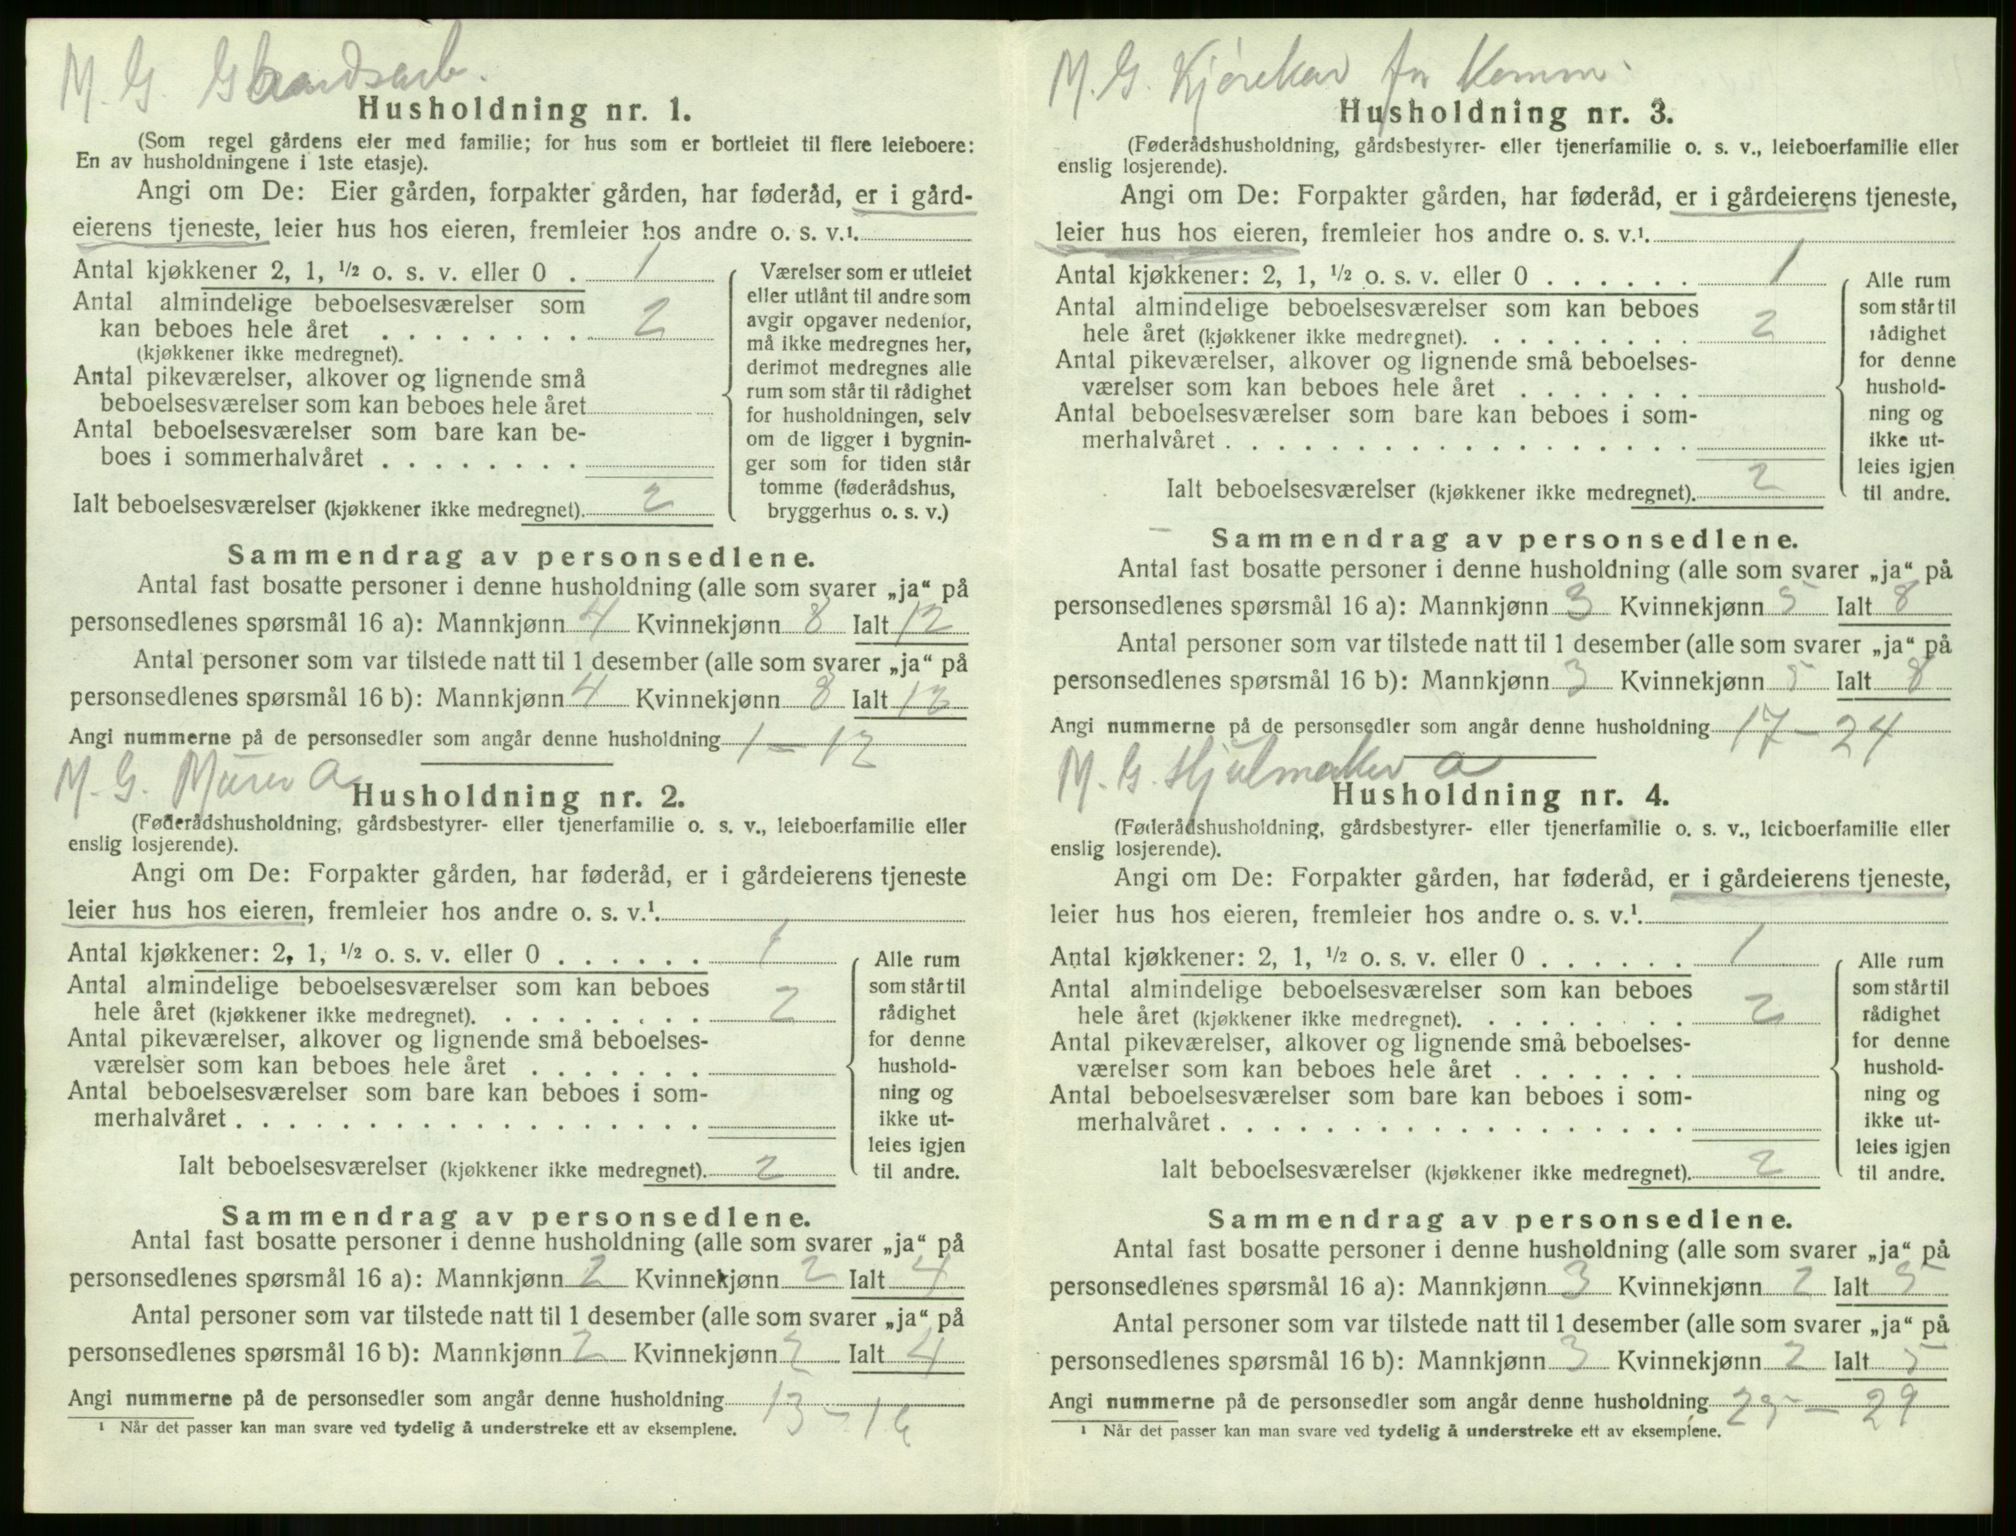 M. G. Gaardsarb.
Husholdning nr. 1.
(Som regel gårdens eier med familie; for hus som er bortleiet til flere leieboere:
En av husholdningene i 1ste etasje).
Angi om De: Eier gården, forpakter gården, har føderåd, er i gård-
eierens tjeneste, leier hus hos eieren, fremleier hos andre o. s. v.¹
Antal kjøkkener 2, 1, ½ o. s. v. eller 0 . 1
Antal almindelige beboelsesværelser som
kan beboes hele året . . . . . . . . 2
(kjøkkener ikke medregnet).
Antal pikeværelser, alkover og lignende små
beboelsesværelser som kan beboes hele året
Antal beboelsesværelser som bare kan be-
boes i sommerhalvåret . . . . . . . .
Ialt beboelsesværelser (kjøkkener ikke medregnet). 2
Værelser som er utleiet
eller utlånt til andre som
avgir opgaver nedenfor,
må ikke medregnes her,
derimot medregnes alle
rum som står til rådighet
for husholdningen, selv
om de ligger i bygnin-
ger som for tiden står
tomme (føderådshus,
bryggerhus o. s. v.)
Sammendrag av personsedlene.
Antal fast bosatte personer i denne husholdning (alle som svarer „ja“ på
personsedlenes spørsmål 16 a): Mannkjønn 4 Kvinnekjønn 8 Ialt 12
Antal personer som var tilstede natt til 1 desember (alle som svarer „ja“ på
personsedlenes spørsmål 16 b): Mannkjønn 4 Kvinnekjønn 8 Ialt 12
Angi nummerne på de personsedler som angår denne husholdning 1 – 12
M. G. Murer a
Husholdning nr. 2.
(Føderådshusholdning, gårdsbestyrer- eller tjenerfamilie o. s. v., leieboerfamilie eller
enslig losjerende).
Angi om De: Forpakter gården, har føderåd, er i gårdeierens tjeneste
leier hus hos eieren, fremleier hos andre o. s. v.¹
Antal kjøkkener: 2, 1, ½ o. s. v. eller 0 . . . . . . 1
Antal almindelige beboelsesværelser som kan beboes
hele året (kjøkkener ikke medregnet). . . . . . . . . 2
Antal pikeværelser, alkover og lignende små beboelses-
værelser som kan beboes hele året . . . . . . .
Antal beboelsesværelser som bare kan beboes i som-
merhalvåret . . . . . . . . . . . . . . . . . .
Ialt beboelsesværelser (kjøkkener ikke medregnet). 2
Alle rum
som står til
rådighet
for denne
hushold-
ning og
ikke ut-
leies igjen
til andre.
Sammendrag av personsedlene.
Antal fast bosatte personer i denne husholdning (alle som svarer „ja“ på
personsedlenes spørsmål 16 a): Mannkjønn 2 Kvinnekjønn 2 Ialt 4
Antal personer som var tilstede natt til 1 desember (alle som svarer „ja“ på
personsedlenes spørsmål 16 b): Mannkjønn 2 Kvinnekjønn 2 Ialt 4
Angi nummerne på de personsedler som angår denne husholdning 13 – 16
¹ Når det passer kan man svare ved tydelig å understreke ett av eksemplene.
M. G. Kjørekar for Komm.
Husholdning nr. 3.
(Føderådshusholdning, gårdsbestyrer- eller tjenerfamilie o. s. v., leieboerfamilie eller
enslig losjerende).
Angi om De: Forpakter gården, har føderåd, er i gårdeierens tjeneste,
leier hus hos eieren, fremleier hos andre o. s. v.¹
Antal kjøkkener: 2, 1, ½ o. s. v. eller 0 . . . . . . 1
Antal almindelige beboelsesværelser som kan beboes
hele året (kjøkkener ikke medregnet). . . . . . . . . 2
Antal pikeværelser, alkover og lignende små beboelses-
værelser som kan beboes hele året . . . . . . .
Antal beboelsesværelser som bare kan beboes i som-
merhalvåret . . . . . . . . . . . . . . . . . .
Ialt beboelsesværelser (kjøkkener ikke medregnet). 2
Alle rum
som står til
rådighet
for denne
hushold-
ning og
ikke ut-
leies igjen
til andre.
Sammendrag av personsedlene.
Antal fast bosatte personer i denne husholdning (alle som svarer „ja“ på
personsedlenes spørsmål 16 a): Mannkjønn 3 Kvinnekjønn 5 Ialt 8
Antal personer som var tilstede natt til 1 desember (alle som svarer „ja“ på
personsedlenes spørsmål 16 b): Mannkjønn 3 Kvinnekjønn 5 Ialt 8
Angi nummerne på de personsedler som angår denne husholdning 17 – 24
M. G. Hjulmaker a
Husholdning nr. 4.
(Føderådshusholdning, gårdsbestyrer- eller tjenerfamilie o. s. v., leieboerfamilie eller
enslig losjerende).
Angi om De: Forpakter gården, har føderåd, er i gårdeierens tjeneste,
leier hus hos eieren, fremleier hos andre o. s. v.¹
Antal kjøkkener: 2, 1, ½ o. s. v. eller 0 . . . . . . 1
Antal almindelige beboelsesværelser som kan beboes
hele året (kjøkkener ikke medregnet). . . . . . . . . 2
Antal pikeværelser, alkover og lignende små beboelses-
værelser som kan beboes hele året . . . . . . .
Antal beboelsesværelser som bare kan beboes i som-
merhalvåret . . . . . . . . . . . . . . . . . .
Ialt beboelsesværelser (kjøkkener ikke medregnet). 2
Alle rum
som står til
rådighet
for denne
hushold-
ning og
ikke ut-
leies igjen
til andre.
Sammendrag av personsedlene.
Antal fast bosatte personer i denne husholdning (alle som svarer „ja“ på
personsedlenes spørsmål 16 a): Mannkjønn 3 Kvinnekjønn 2 Ialt 5
Antal personer som var tilstede natt til 1 desember (alle som svarer „ja“ på
personsedlenes spørsmål 16 b): Mannkjønn 3 Kvinnekjønn 2 Ialt 5
Angi nummerne på de personsedler som angår denne husholdning 25 – 29
¹ Når det passer kan man svare ved tydelig å understreke ett av eksemplene.